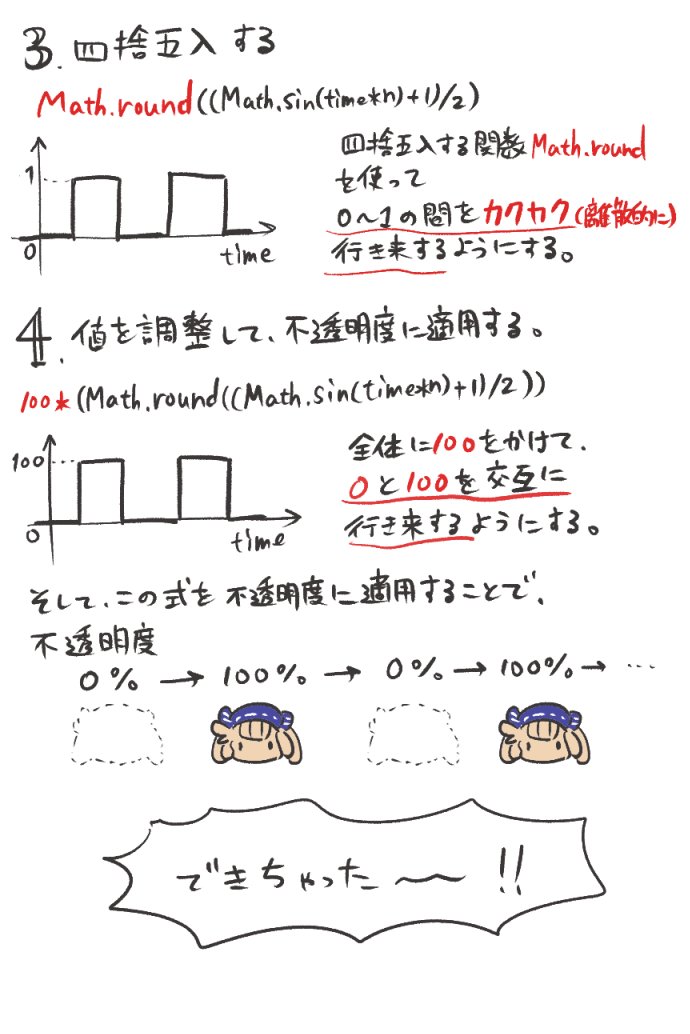 3. 四捨五入する
Math.round((Math.sin(time*n)+1)/2)
1
0
time
四捨五入する関数Math.round
を使って
0〜1の間をカクカク(離散的に)
行き来するようにする。
4. 値を調整して、不透明度に適用する。
100*(Math.round((Math.sin(time*n)+1)/2))
100
0
time
全体に100をかけて、
0と100を交互に
行き来するようにする。
そして、この式を不透明度に適用することで、
不透明度
0% → 100% → 0% → 100% → …
できちゃった〜!!